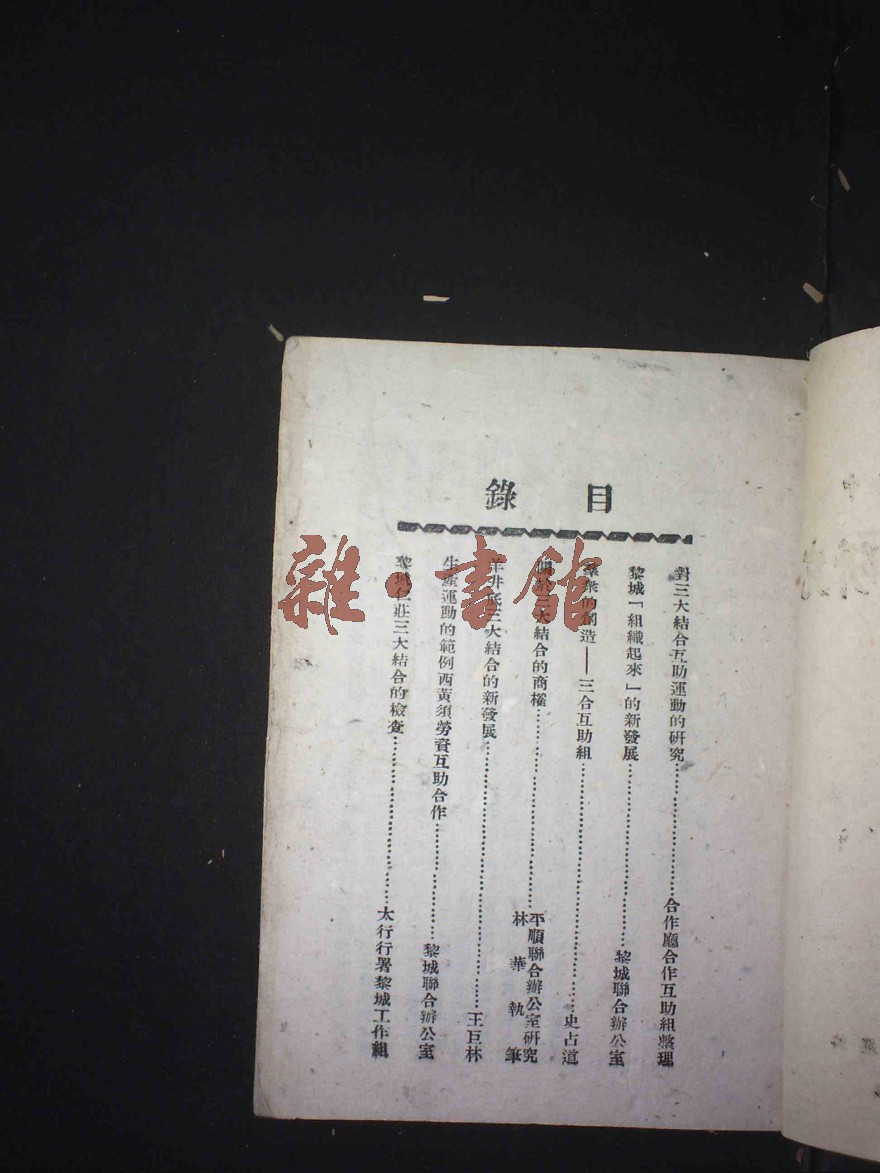 目錄
對三大結合互助運動的研究……合作廳合作互助組整理
黎城「組織起來」的新發展……黎城聯合辦公室
羣衆的創造——三合互助組……史占道
關於三大結合的商榷……平順聯合辦公室研究
林華執筆
羊井底三大結合的新發展……王巨林
生產運動的範例西黃須勞資互助合作……黎城聯合辦公室
黎城仁莊三大結合的檢查……太行行署黎城工作組
雜·書館